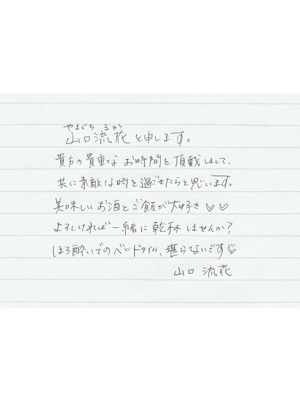 やまぐち るか
山口流花と申します。
貴方の貴重なお時間を頂戴しまして、
共に素敵な時を過ごせたらと思います。
美味しいお酒とご飯が大好き♡♡
よろしければ一緒に乾杯しませんか?
ほろ酔いでのベッドタイム、堪らないです♡
山口 流花